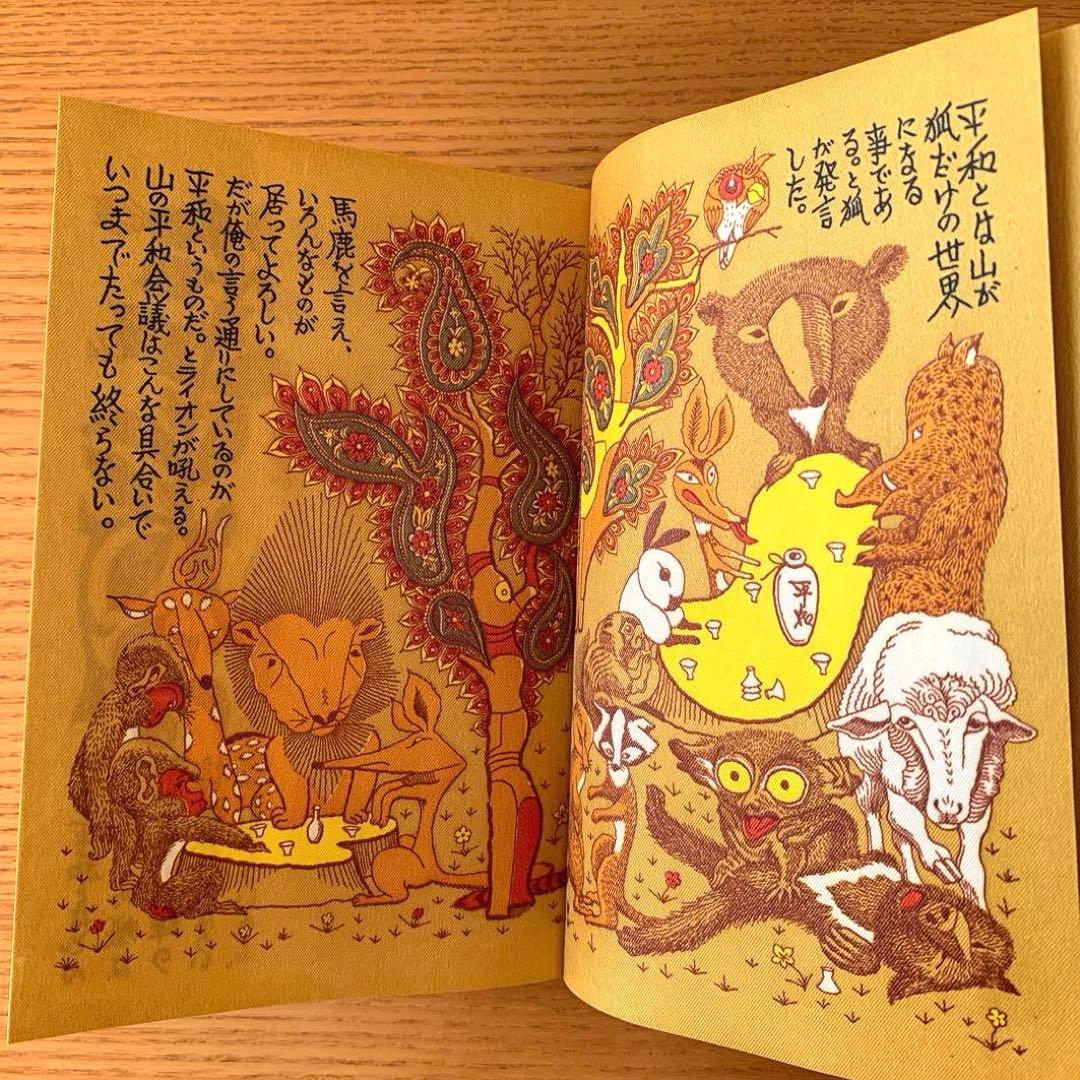 平和とは山が
狐だけの世界
になる
事であ
る。と狐
が発言
した。
平和
馬鹿を言え、
いろんなものが
居ってよろしい。
だが俺の言う通りにしているのが
平和というものだ。とライオンが吼える。
山の平和会議はこんな具合いで
いつまでたっても終らない。